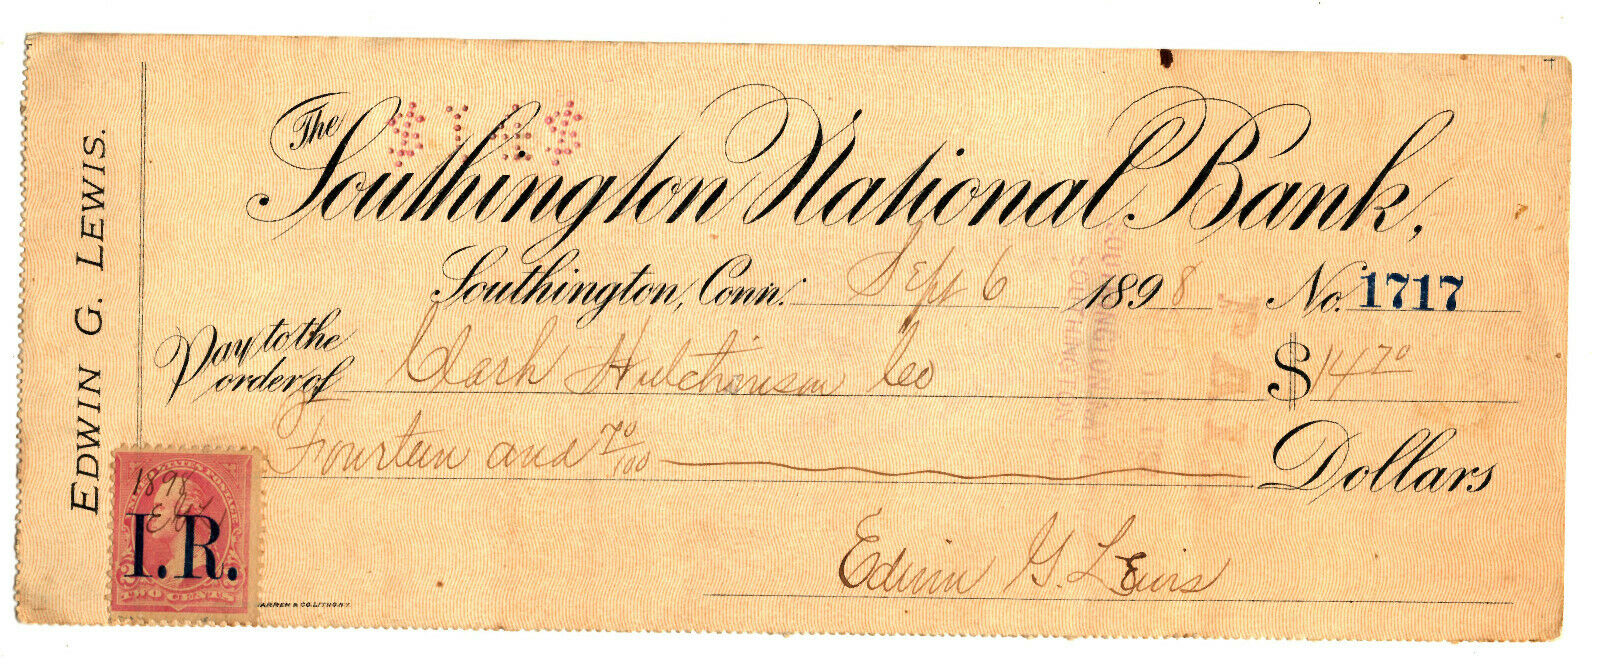 EDWIN G. LEWIS.
The Southington National Bank,
Southington, Conn. Sept 6 1898 No. 1717
Pay to the order of Clark Hutchinson Co $14 70
Fourteen and 70/100 Dollars
Edwin G. Lewis
1898
I.R.
TWO CENTS
$14$
PAID
SOUTHINGTON